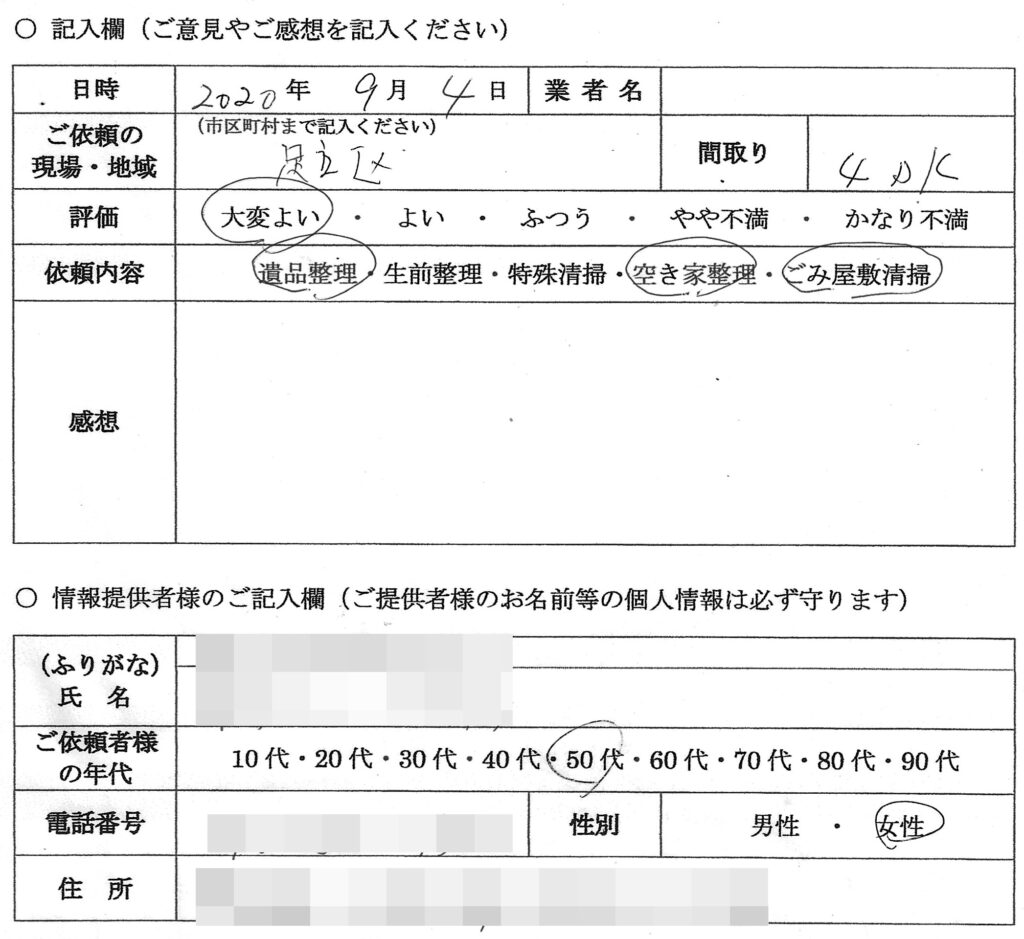 ○ 記入欄（ご意見やご感想を記入ください）
日時 2020年 9月 4日 業者名
ご依頼の現場・地域 (市区町村まで記入ください) 足立区 間取り 4DK
評価 大変よい ・ よい ・ ふつう ・ やや不満 ・ かなり不満
依頼内容 遺品整理・生前整理・特殊清掃・空き家整理・ごみ屋敷清掃
感想
○ 情報提供者様のご記入欄（ご提供者様のお名前等の個人情報は必ず守ります）
（ふりがな）
氏 名
ご依頼者様の年代 10代・20代・30代・40代・50代・60代・70代・80代・90代
電話番号 性別 男性 ・ 女性
住 所